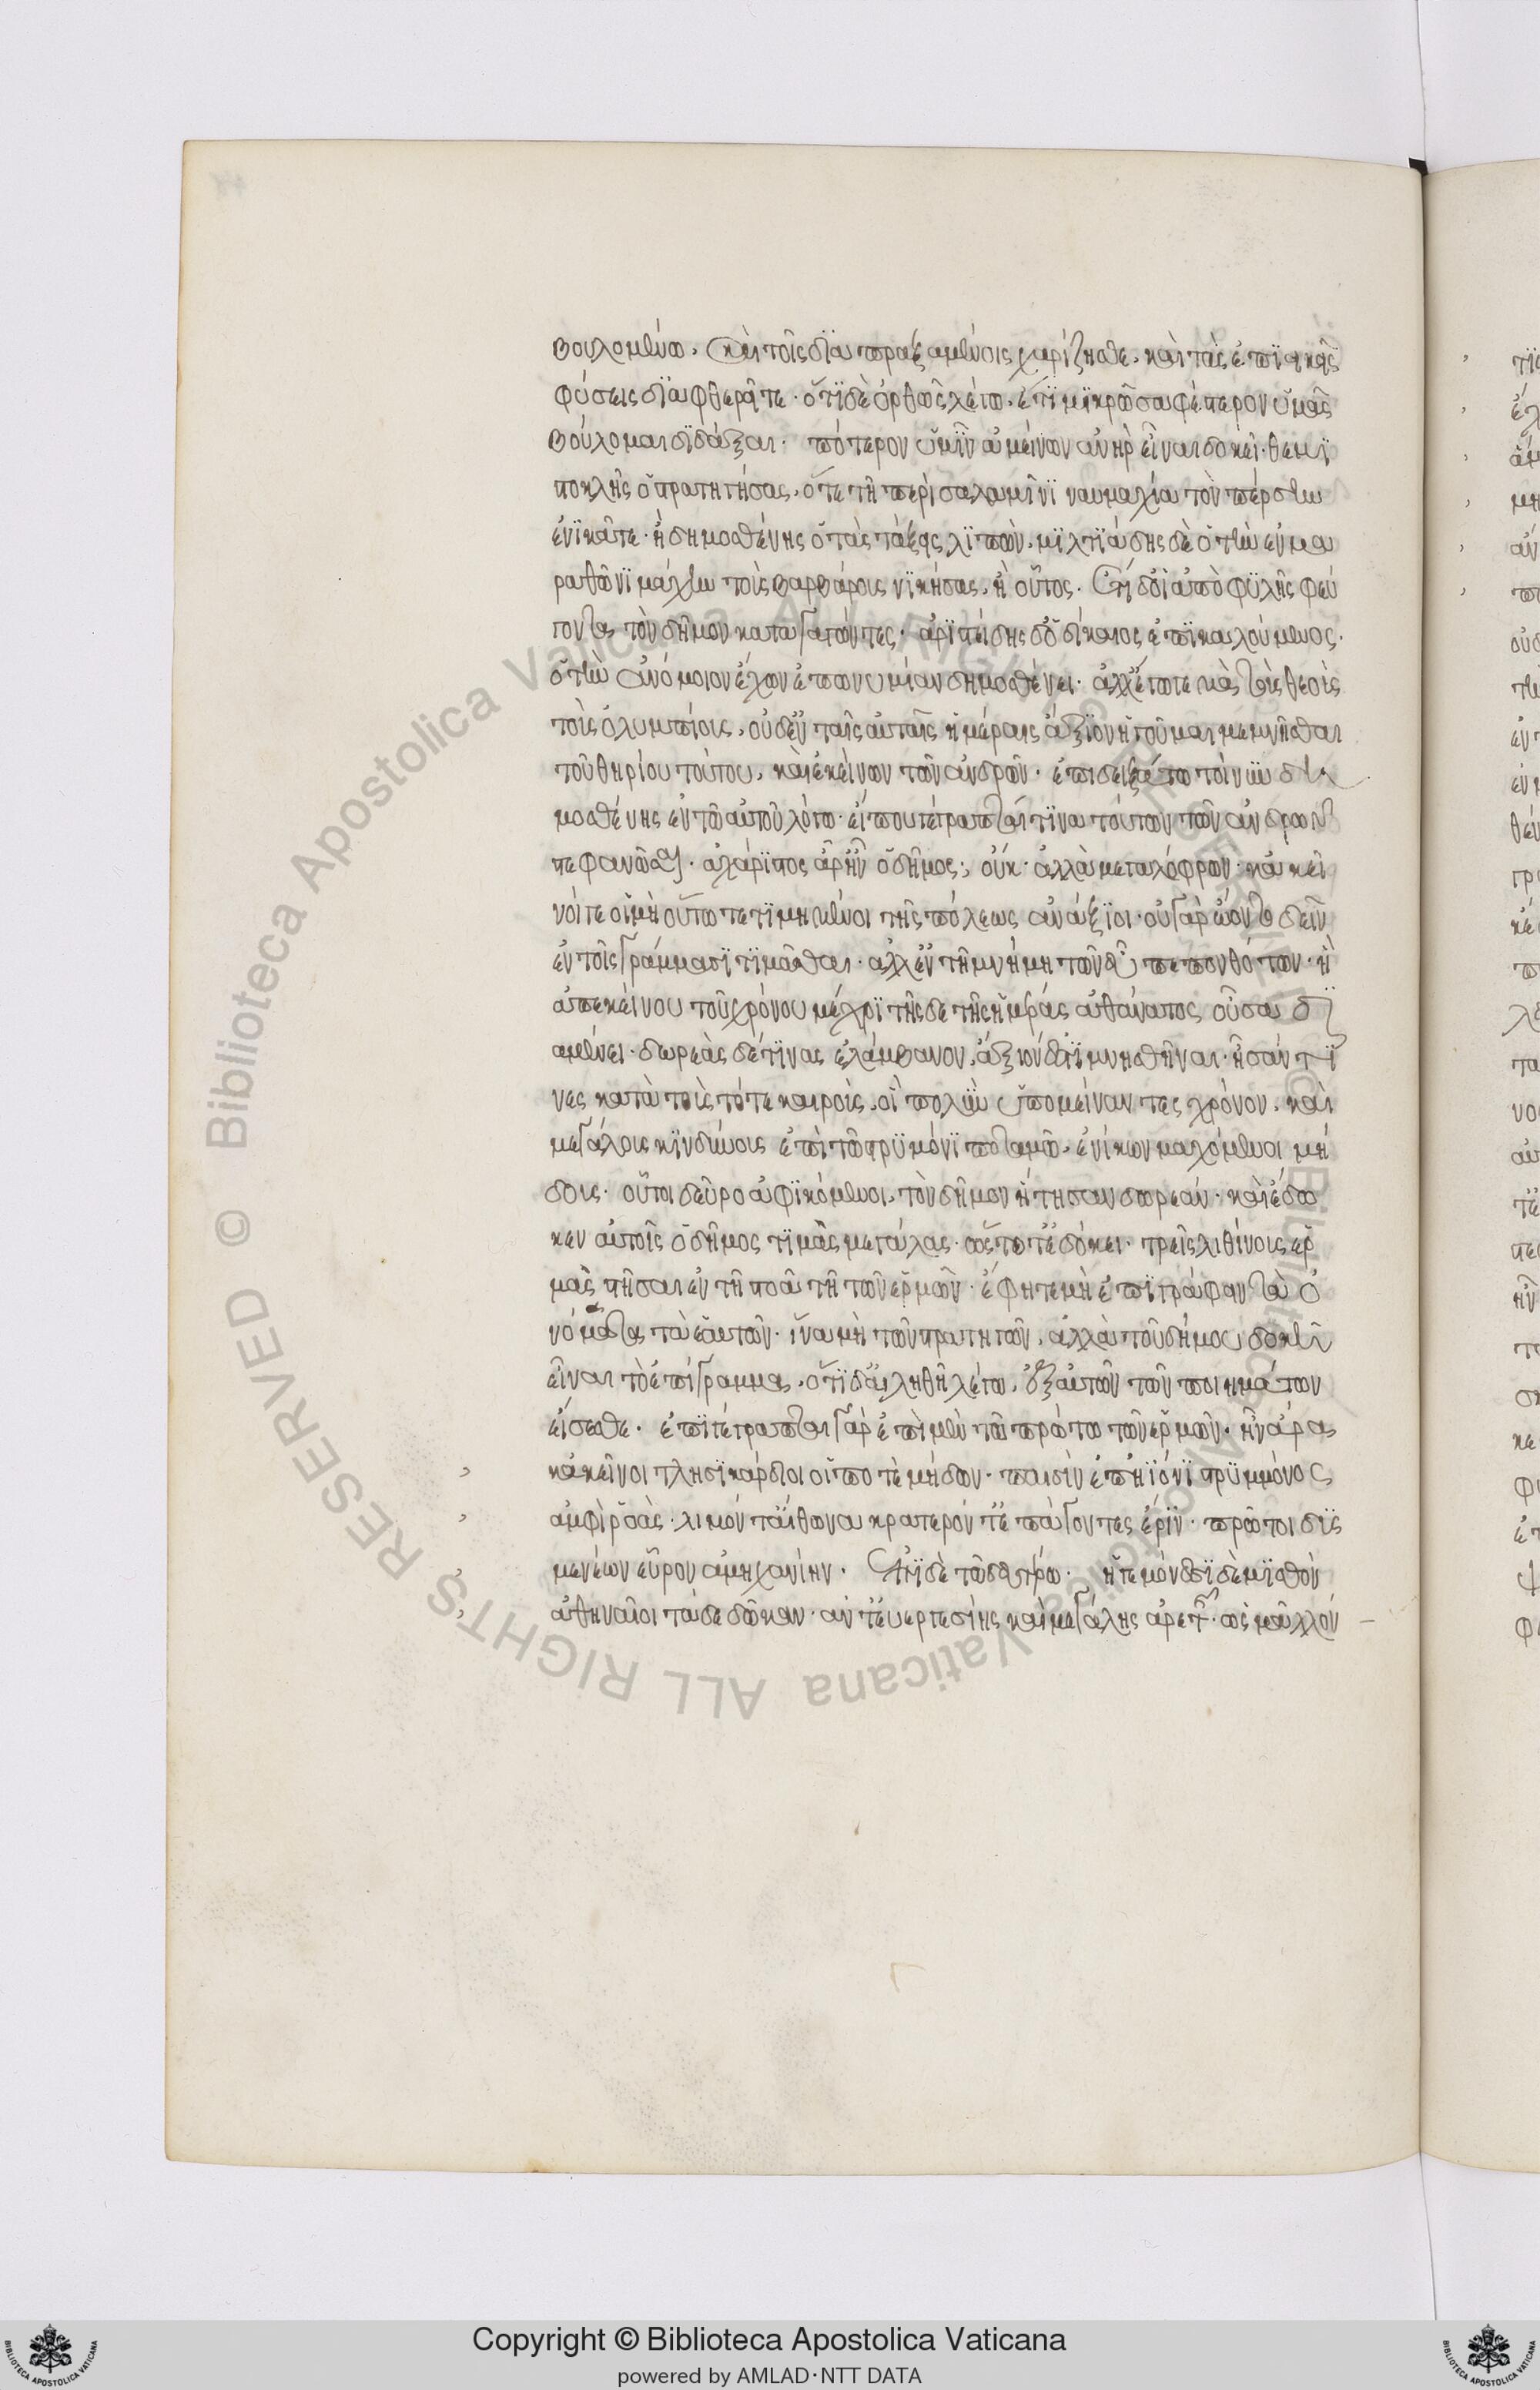 βουλομένω. καὶ τοῖς διαπραξαμένοις χαρίζησθε. καὶ τὰς ἐπιεικεῖς
φύσεις διαφθερεῖτε. ὅτι δὲ ὀρθῶς λέγω. ἔτι μικρῶ σαφέστερον ὑμᾶς
βούλομαι διδάξαι. πότερον ὑμῖν ἀμείνων ἀνὴρ εἶναι δοκεῖ. θεμι
στοκλῆς ὁ στρατηγήσας. ὅτε τῆ περὶ σαλαμῖνι ναυμαχία τὸν πέρσην
ἐνικᾶτε. ἢ δημοσθένης ὁ τὰς τάξεις λιπών. μιλτιάδης δὲ ὁ τὴν ἐν μα
ραθῶνι μάχην τοὺς βαρβάρους νικήσας. ἢ οὗτος. ἔτι δ' οἱ ἀπὸ φυλῆς φεύ
γοντα τὸν δῆμον καταγαγόντες. ἀριστείδης δ' ὁ δίκαιος ἐπικαλούμενος.
ὁ τὴν ἀνόμοιον ἔχων ἐπωνυμίαν δημοσθένει. ἀλλ' ἔγωγε μὰ τοὺς θεοὺς
τοὺς ὀλυμπίους. οὐδ' ἐν ταῖς αὐταῖς ἡμέραις ἄξιον ἡγοῦμαι μεμνῆσθαι
τοῦ θηρίου τούτου. καὶ ἐκείνων τῶν ἀνδρῶν. ἐπιδειξάτω τοίνυν δη
μοσθένης ἐν τῶ αὐτοῦ λόγω. εἴ που γέγραπταί τινα τούτων τῶν ἀνδρῶν
στεφανῶσαι. ἀχάριστος ἆρ' ἦν ὁ δῆμος; οὔκ. ἀλλὰ μεγαλόφρων. κἀκεῖ
νοί γε οἱ μὴ οὕτω τετιμημένοι τῆς πόλεως ἀνάξιοι. οὐ γὰρ ὤοντο δεῖν
ἐν τοῖς γράμμασι τιμᾶσθαι. ἀλλ' ἐν τῆ μνήμη τῶν εὖ πεπονθότων. ἣ
ἀπ' ἐκείνου τοῦ χρόνου μέχρι τῆσδε τῆς ἡμέρας ἀθάνατος οὖσα δι
αμένει. δωρεὰς δὲ τίνας ἐλάμβανον. ἄξιόν ἐστι μνησθῆναι. ἦσάν τι
νες κατὰ τοὺς τότε καιροὺς. οἳ πολὺν ὑπομείναντες χρόνον. καὶ
μεγάλους κινδύνους ἐπὶ τῶ στρυμόνι ποταμῶ. ἐνίκων μαχόμενοι μή
δους. οὗτοι δεῦρο ἀφικόμενοι. τὸν δῆμον ἤτησαν δωρεάν. καὶ ἔδω
κεν αὐτοῖς ὁ δῆμος τιμὰς μεγάλας. ὡς τότ' ἐδόκει. τρεῖς λιθίνους ἑρ
μᾶς στῆσαι ἐν τῆ στοᾶ τῆ τῶν ἑρμῶν. ἐφ' ᾧτε μὴ ἐπιγράφαν τὰ ὀ
νόματα τὰ ἑαυτῶν. ἵνα μὴ τῶν στρατηγῶν. ἀλλὰ τοῦ δήμου δοκῆ
εἶναι τὸ ἐπίγραμμα. ὅτι δ' ἀληθῆ λέγω. ἐξ αὐτῶν τῶν ποιημάτων
εἴσεσθε. ἐπιγέγραπται γὰρ ἐπὶ μὲν τῶ πρώτω τῶν ἑρμῶν. ἦν ἄρα
κἀκεῖνοι τλησικάρδιοι οἵ ποτε μήδων. παισὶν ἐπ' ἠιόνι στρυμμόνος
ἀμφὶ ῥοάς. λιμόν τ' αἴθωνα κρατερόν τ' ἐπάγοντες ἔριν. πρῶτοι δυς
μενέων εὗρον ἀμηχανίην. ἐπὶ δὲ τῶ δευτέρω. ἡγεμόνεσσι δὲ μισθόν
ἀθηναῖοι τάδε δῶκαν. ἀντ' εὐεργεσίης καὶ μεγάλης ἀρετῆς. ὡς μᾶλλόν